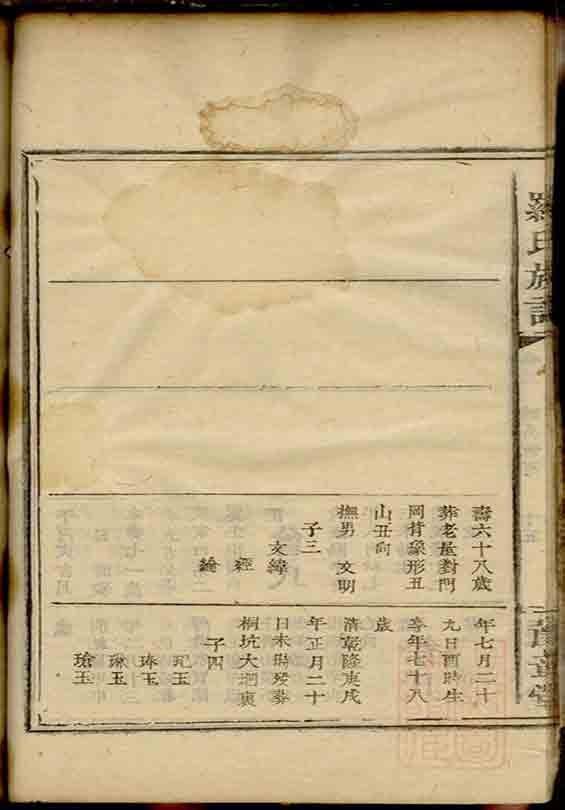 羅氏族譜
豫章堂
壽六十八歲
葬老屋對門
岡背象形丑
山丑向
撫男 文明
子三
文緯
經
綸
年七月二十
九日酉時生
壽年七十八
歲
清乾隆庚戌
年正月二十
日未時歿葬
桐坑大垇裏
子四
玘玉
琫玉
琳玉
瑲玉